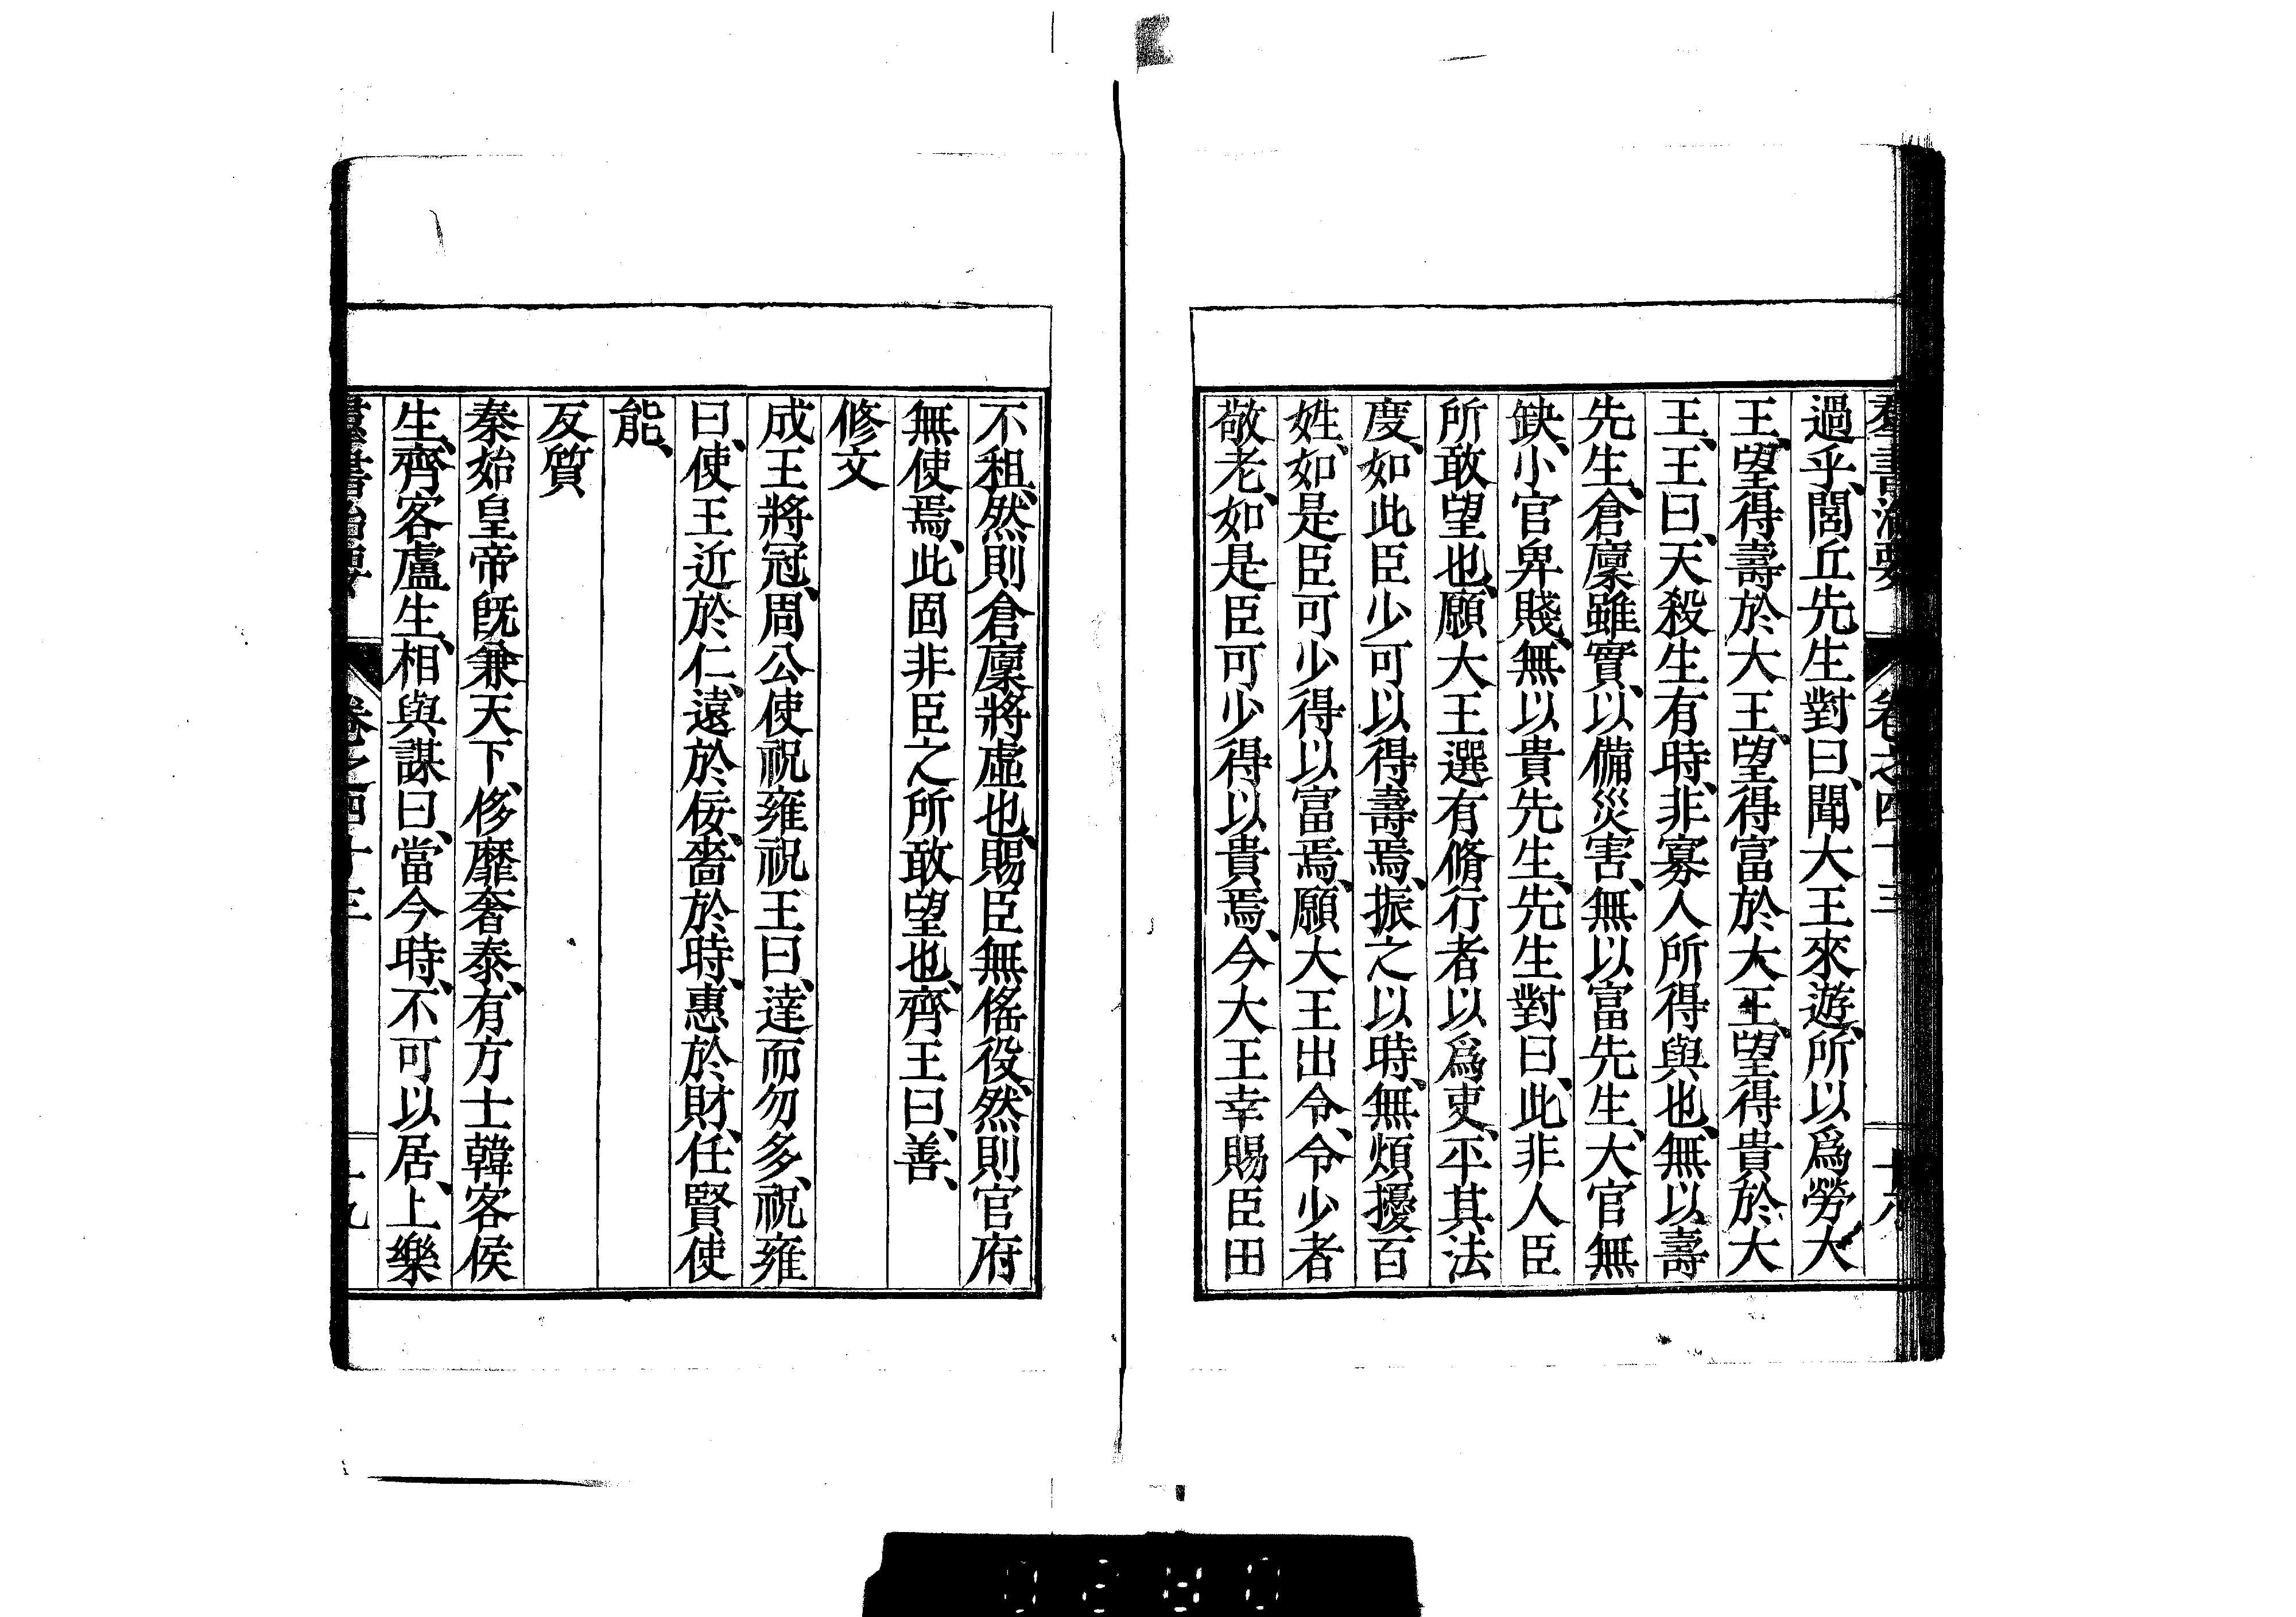 羣書治要 卷之四十三 十八
過乎、閭丘先生對曰、聞大王來遊、所以爲勞大
王、望得壽於大王、望得富於大王、望得貴於大
王、王曰、天殺生有時、非寡人所得與也、無以壽
先生、倉廩雖實、以備災害、無以富先生、大官無
缺、小官卑賤、無以貴先生、先生對曰、此非人臣
所敢望也、願大王選有脩行者以爲吏、平其法
度、如此臣少可以得壽焉、振之以時、無煩擾百
姓、如是臣可少得以富焉、願大王出令、令少者
敬老、如是臣可少得以貴焉、今大王幸賜臣田
不租、然則倉廩將虛也、賜臣無徭役、然則官府
無使焉、此固非臣之所敢望也、齊王曰、善、
修文
成王將冠、周公使祝雍祝王曰、達而勿多、祝雍
曰、使王近於仁、遠於佞、嗇於時、惠於財、任賢使
能、
反質
秦始皇帝旣兼天下、侈靡奢泰、有方士韓客侯
生、齊客盧生、相與謀曰、當今時、不可以居、上樂
羣書治要 卷之四十三 十九